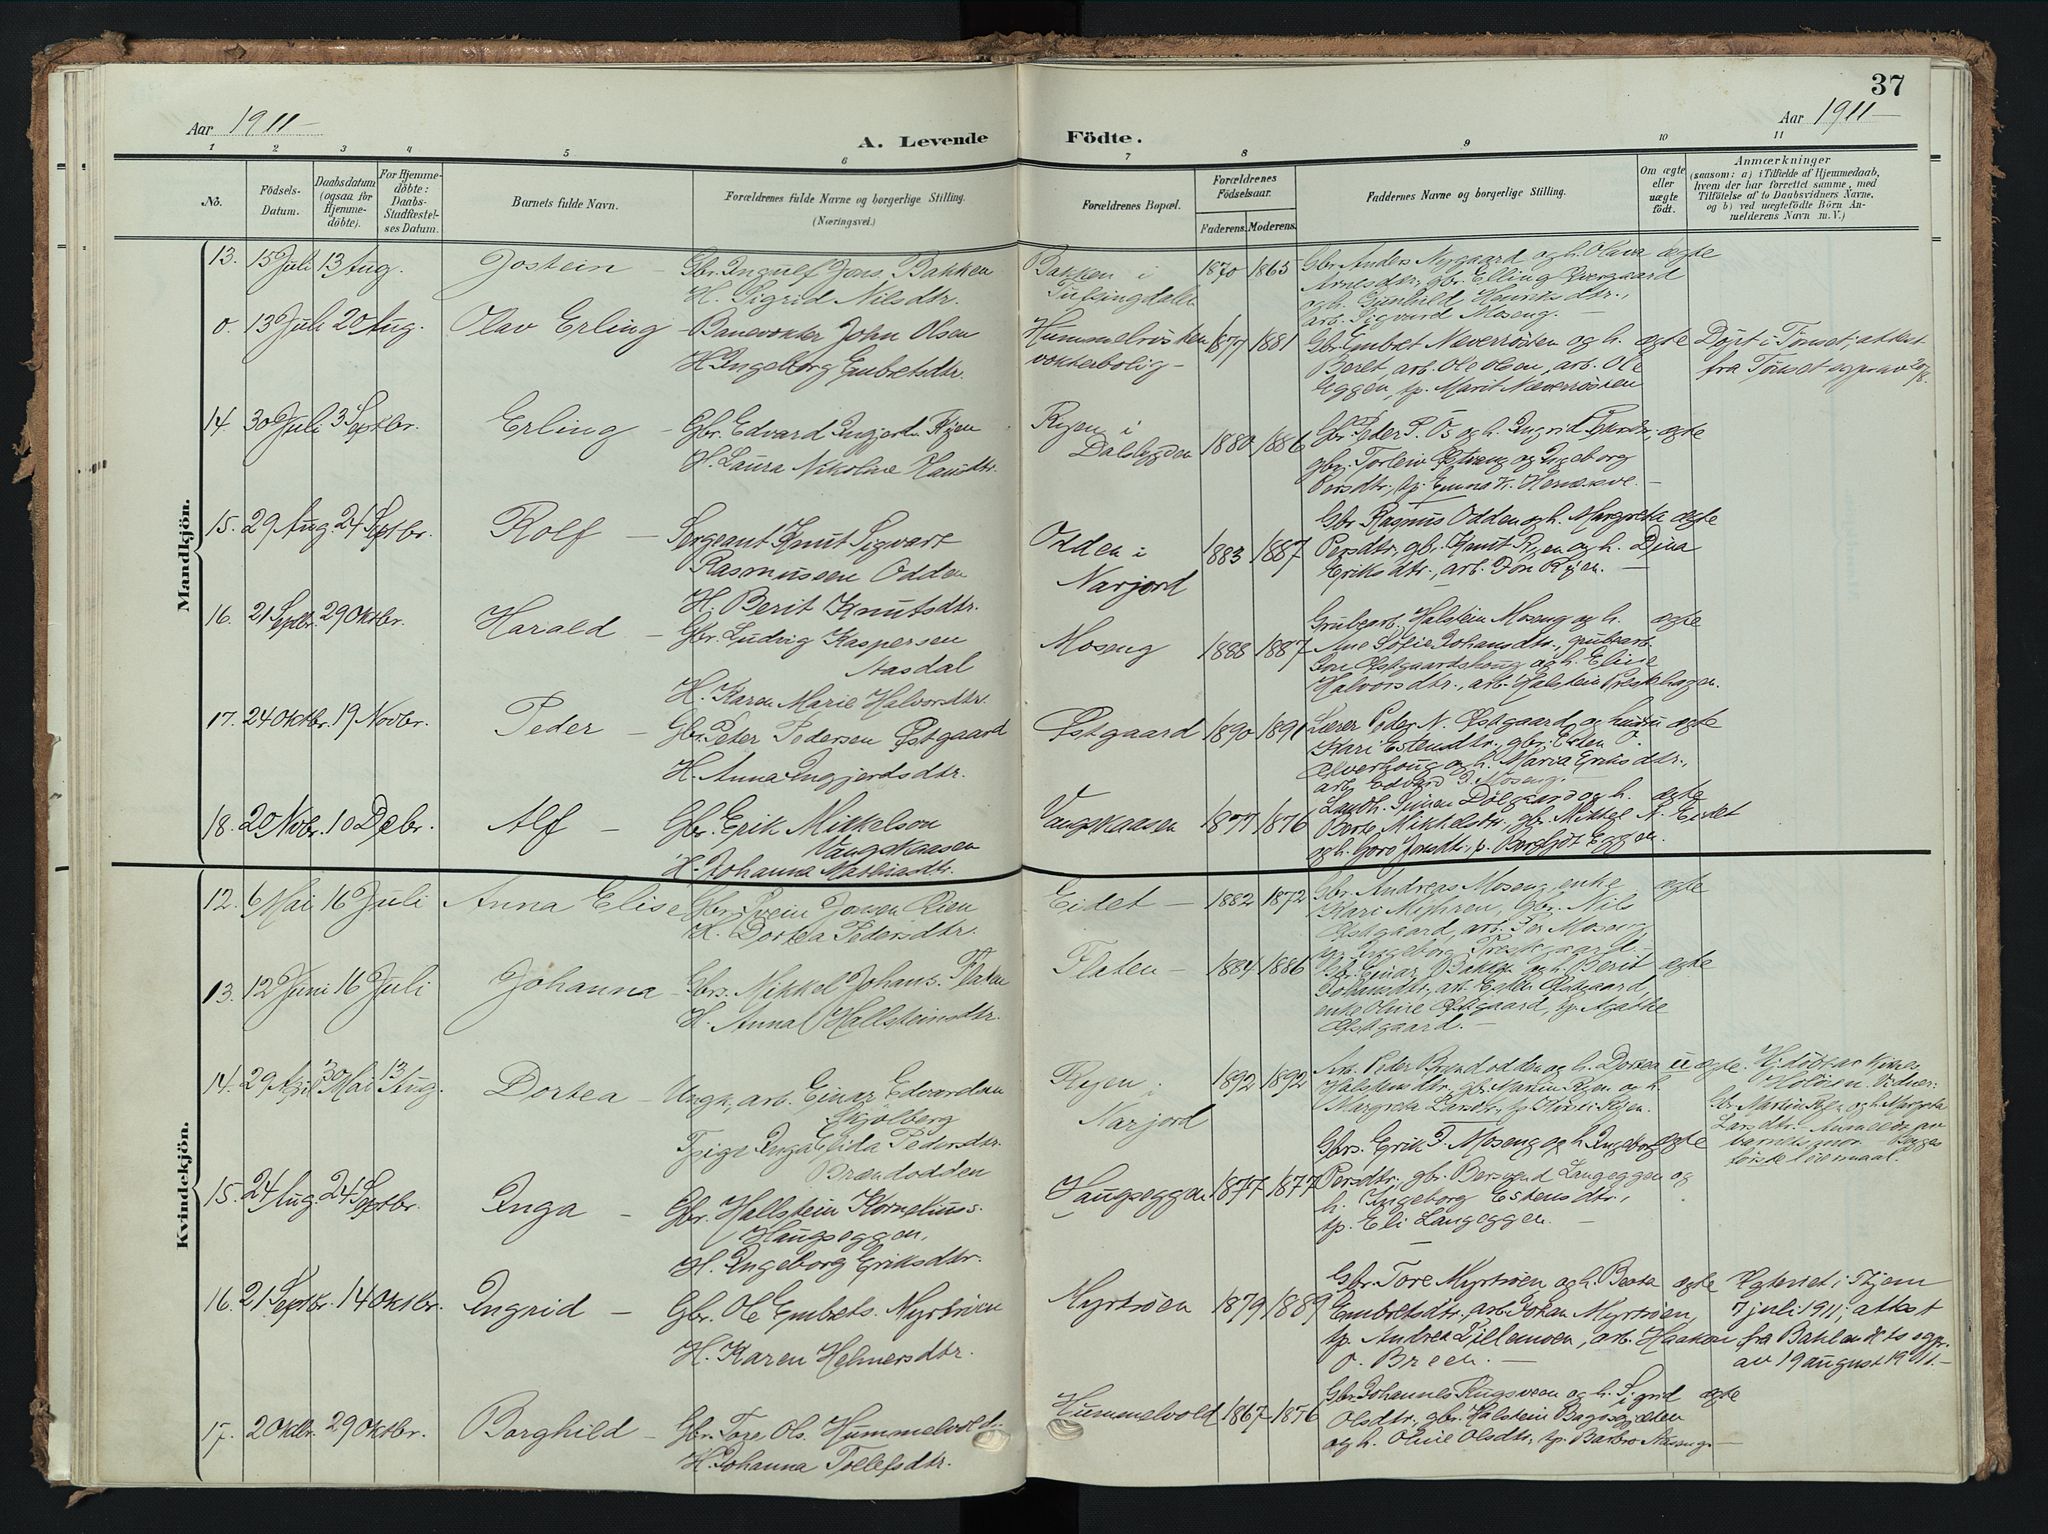 37
Aar 1911
A. Levende Födte.
Aar 1911
1 2 3 4 5 6 7 8 9 10 11
No.
Födsels-Datum.
Daabsdatum (ogsaa for Hjemmedöbte).
For Hjemmedöbte: Daabs-Stadfæstelses Datum.
Barnets fulde Navn.
Forældrenes fulde Navne og borgerlige Stilling.
(Næringsvei.)
Forældrenes Bopæl.
Forældrenes Födselsaar.
Faderens. Moderens.
Faddernes Navne og borgerlige Stilling.
Om ægte eller uægte födt.
Anmærkninger
(saasom: a) i Tilfælde af Hjemmedaab,
hvem der har forrettet samme, med
Tilföielse af to Daabsvidners Navne.
og b) ved uægtefödte Börn An-
melderens Navn m. V.)
Mandkjön.
13. 15 Juli 13 Aug. Jostein - Gbr. Ingulf Jons. Bakken
H. Sigrid Nilsdtr.
Bakken i
Tufsingdalen
1870 1865
Gbr. Anders Nygaard og h. Olava ægte
Arnesdtr., gbr. Elling Øvergaard
og h. Gunhild Henriksdtr.,
arb. Sigvard Moseng. -
0. 13 Juli 20 Aug. Olav Erling - Banevokter John Olsen
H. Ingeborg Embretsdtr.
vokterbolig -
1877 1881
Gbr. Embret Neverrösten og h. ægte
Beret, arb. Ole Olsen, arb. Ole
Eggen, tp. Marit Neverrösten
Döpt i Tönset; attest
fra Tönset sogepr. av 20/8.
14 30 Juli 3 Septbr. Erling - Gbr. Edvard Ingjerds. Ryen
H. Laura Nikoline Hansdtr.
Ryen i
Dalsbygden
1880 1886
Gbr. Peder P. Os og h. Ingrid ægte
gbr. Torleiv og Ingeborg
Persdtr., tp. Emma
15. 29 Aug. 24 Septbr. Rolf - Sergeant Knut Sigvart
Rasmussen Odden
H. Berit Knutsdtr.
Odden i
Narjord
1883 1887
Gbr. Rasmus Odden og h. Margreta ægte
Persdtr., gbr. Knut Ryen og h. Dina
Eriksdtr., arb. Jon Ryen. -
16. 21 Septbr. 29 Oktbr. Harald - Gbr. Ludvig Kaspersen
Aasdal
H. Karen Marie Halvorsdtr.
Moseng
1888 1887
Grubearb. Halstein Moseng og h. ægte
Ane Sofie Johansdtr., grubearb.
Jon Østgaardshaug og h. Elise
Halvorsdtr., arb. Halstein Prestehagen.
17. 24 Oktbr. 19 Novbr. Peder - Gbr. Peter Pedersen Østgaard
H. Anna Ingjerdsdtr.
Østgaard
1890 1891
Lærer Peder N. Østgaard og hustru ægte
Kari Estensdtr., gbr. Esten O.
Alverhaug og h. Maria Eriksdtr.,
arb. Edvard P. Moseng. -
18. 20 Novbr. 10 Decbr. Alf - Gbr. Erik Mikkelsen
Vangskaasen
H. Johanna Mathiasdtr.
Vangskaasen
1877 1876
Landh. Simen Dölgaard og h. ægte
Berte Mikkelsdtr., gbr. Mikkel A. Eidet
og h. Goro Jonsdtr., p. Bergljot Eggen.
Kvindekjön.
12. 6 Mai 16 Juli Anna Elise Gbr. Svein Jonsen Lien
H. Dortea Pedersdtr.
Eidet -
1882 1872
Gbr. Andreas Moseng, enke ægte
Kari Myhren, gbr. Nils
Østgaard, arb. Per Moseng,
p. Ingeborg Prestgaard. -
13. 12 Juni 16 Juli Johanna - Gbrs. Mikkel Johans. Flaten
H. Anna Hallsteinsdtr.
Flaten -
1884 1886
Gbr. Einar Bakken og h. Berit ægte
Johansdtr., arb. Esten Østgaard,
enke Oline Østgaard, tp. Agathe
Østgaard. -
14. 29 April 30 Mai 13 Aug. Dortea - Ungk., arb. Einar Edvardsen
Skjölberg
Pige Inga Elida Pedersdtr.
Brændodden
Ryen i
Narjord
1892 1892
Arb. Peder Brændodden og h. Dortea uægte.
Halstensdtr., gbr. Martin Ryen og h.
Margreta Larsdtr., tp. Ryen.
Hj.döbt av
Vidner:
Gbr. Martin Ryen og h. Margreta
Larsdtr. Anmeldt av
barnets mor. Begges
förste leiermaal.
15. 24 Aug. 24 Septbr. Inga - Gbr. Hallstein Kornelius.
Haugseggen,
H. Ingeborg Eriksdtr.
Haugseggen
1877 1877
Gbrs. Erik P. Moseng og h. Ingeborg ægte
Persdtr., gbr. Bersvend Langeggen og
h. Ingeborg Estensdtr.,
tp. Eli Langeggen. -
16. 21 Septbr. 14 Oktbr. Ingrid - Gbr. Ole Embrets. Myrtröen
H. Karen Helmersdtr.
Myrtröen
1879 1889
Gbr. Tore Myrtröen og h. Beata ægte
Embretsdtr., arb. Johan Myrtröen,
tp. Andrea Lillemoen, arb. Haakon
O. Breen. -
Ægteviet i
7 juli 1911; attest
fra sogpr.
av 19 august 1911. -
17. 2 Oktbr. 29 Oktbr. Borghild - Gbr. Tore Ols. Hummelvold.
H. Johanna Tollefsdtr.
Hummelvold
1867 1876
Gbr. Johannes Rugsveen og h. Sigrid ægte
Olsdtr., gbr. Halstein
og h. Oline Olsdtr., tp. Barbro